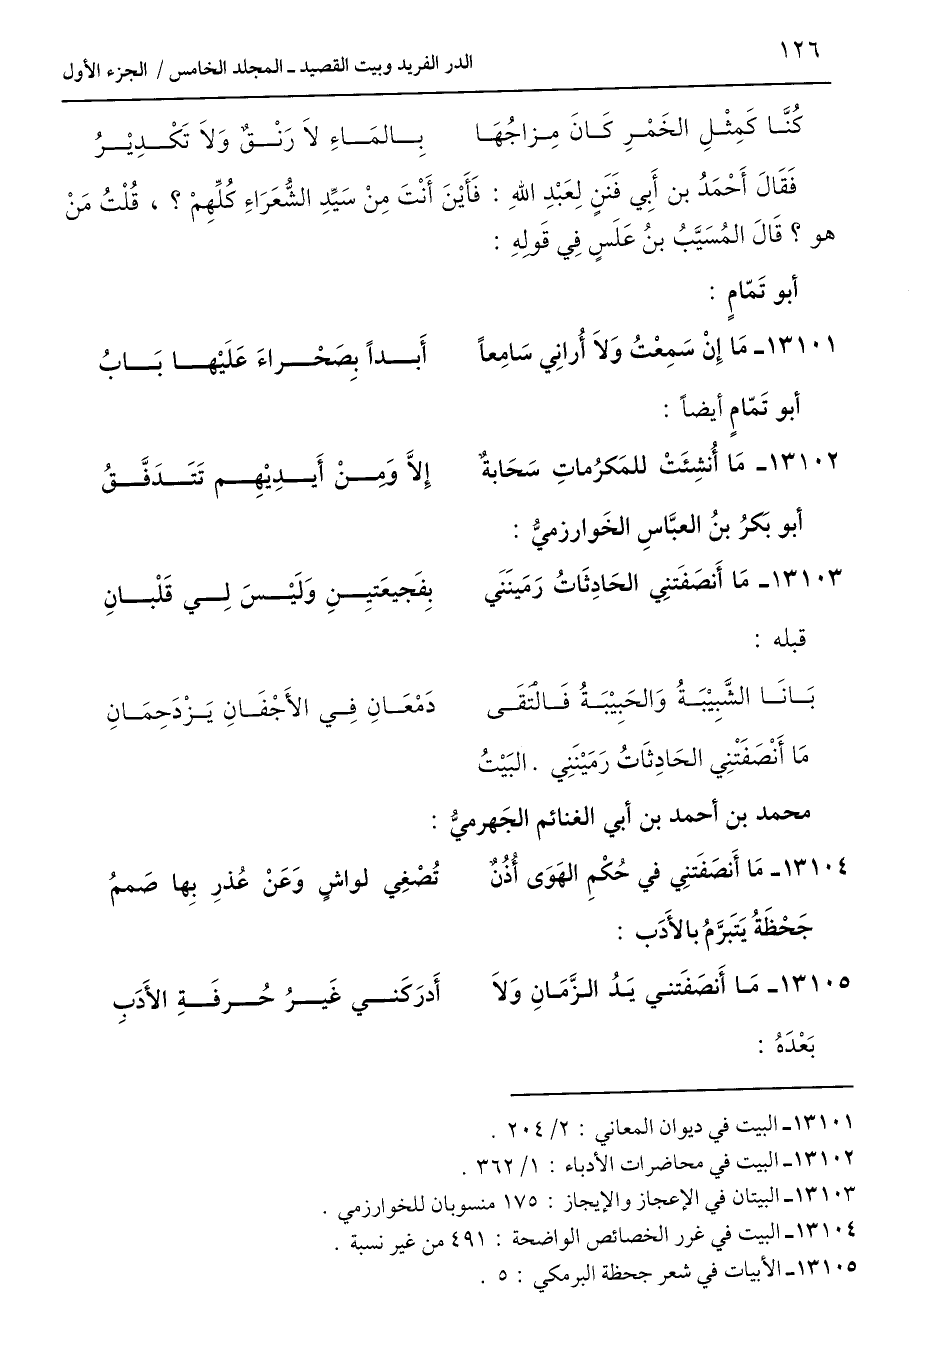 ١٢٦
الدر الفريد وبيت القصيد ـ المجلد الخامس / الجزء الأول
كُنَّا كَمِثْلِ الخَمْرِ كَانَ مِزاجُهَا بِالمَاءِ لاَ رَنْقٌ وَلاَ تَكْدِيْرُ
فَقَالَ أَحْمَدُ بن أَبِي فَنَنٍ لِعَبْدِ اللهِ : فَأَيْنَ أَنْتَ مِنْ سَيِّدِ الشُّعَرَاءِ كُلِّهِمْ ؟ ، قُلْتُ مَنْ
هو ؟ قَالَ المُسَيَّبُ بنُ عَلَسٍ فِي قَولِهِ :
أبو تَمّامٍ :
١٣١٠١ـ مَا إِنْ سَمِعْتُ وَلاَ أُراني سَامِعاً أَبداً بِصَحْراءَ عَلَيْها بَابُ
أبو تَمّامٍ أيضاً :
١٣١٠٢ـ مَا أُنشِئَتْ للمَكرُماتِ سَحَابةٌ إلاَّ وَمِنْ أَيدِيْهِم تَتَدَفَّقُ
أبو بَكرُ بنُ العبَّاسِ الخَوارزميُّ :
١٣١٠٣ـ مَا أَنصَفَتني الحَادثَاتُ رَمَينَنَي بِفَجيعَتينِ وَلَيْسَ لِي قَلْبانِ
قبله :
بَانَا الشَّبِيْبَةُ وَالحَبِيْبَةُ فَالتَقَى دَمْعَانِ فِي الأَجْفَانِ يَزْدَحِمَانِ
مَا أَنْصَفَتْنِي الحَادِثَاتُ رَمَيْنَنِي . البَيْتُ
محمد بن أحمد بن أبي الغنائم الجَهرميُّ :
١٣١٠٤ـ مَا أَنصَفَتنِي في حُكْمِ الهَوَى أُذُنٌ تُصْغِي لواشٍ وَعَنْ عُذرِ بِها صَممُ
جَحْظَةُ يَتَبرَّمُ بالأَدَب :
١٣١٠٥ـ مَا أَنصَفَتني يَدُ الزَّمَانِ وَلاَ أَدرَكَني غَيرُ حُرفَةِ الأدَبِ
بَعْدَهُ :
١٣١٠١ـ البيت في ديوان المعاني : ٢/ ٢٠٤ .
١٣١٠٢ـ البيت في محاضرات الأدباء : ١/ ٣٦٢ .
١٣١٠٣ـ البيتان في الإعجاز والإيجاز : ١٧٥ منسوبان للخوارزمي .
١٣١٠٤ـ البيت في غرر الخصائص الواضحة : ٤٩١ من غير نسبة .
١٣١٠٥ـ الأبيات في شعر جحظة البرمكي : ٥ .